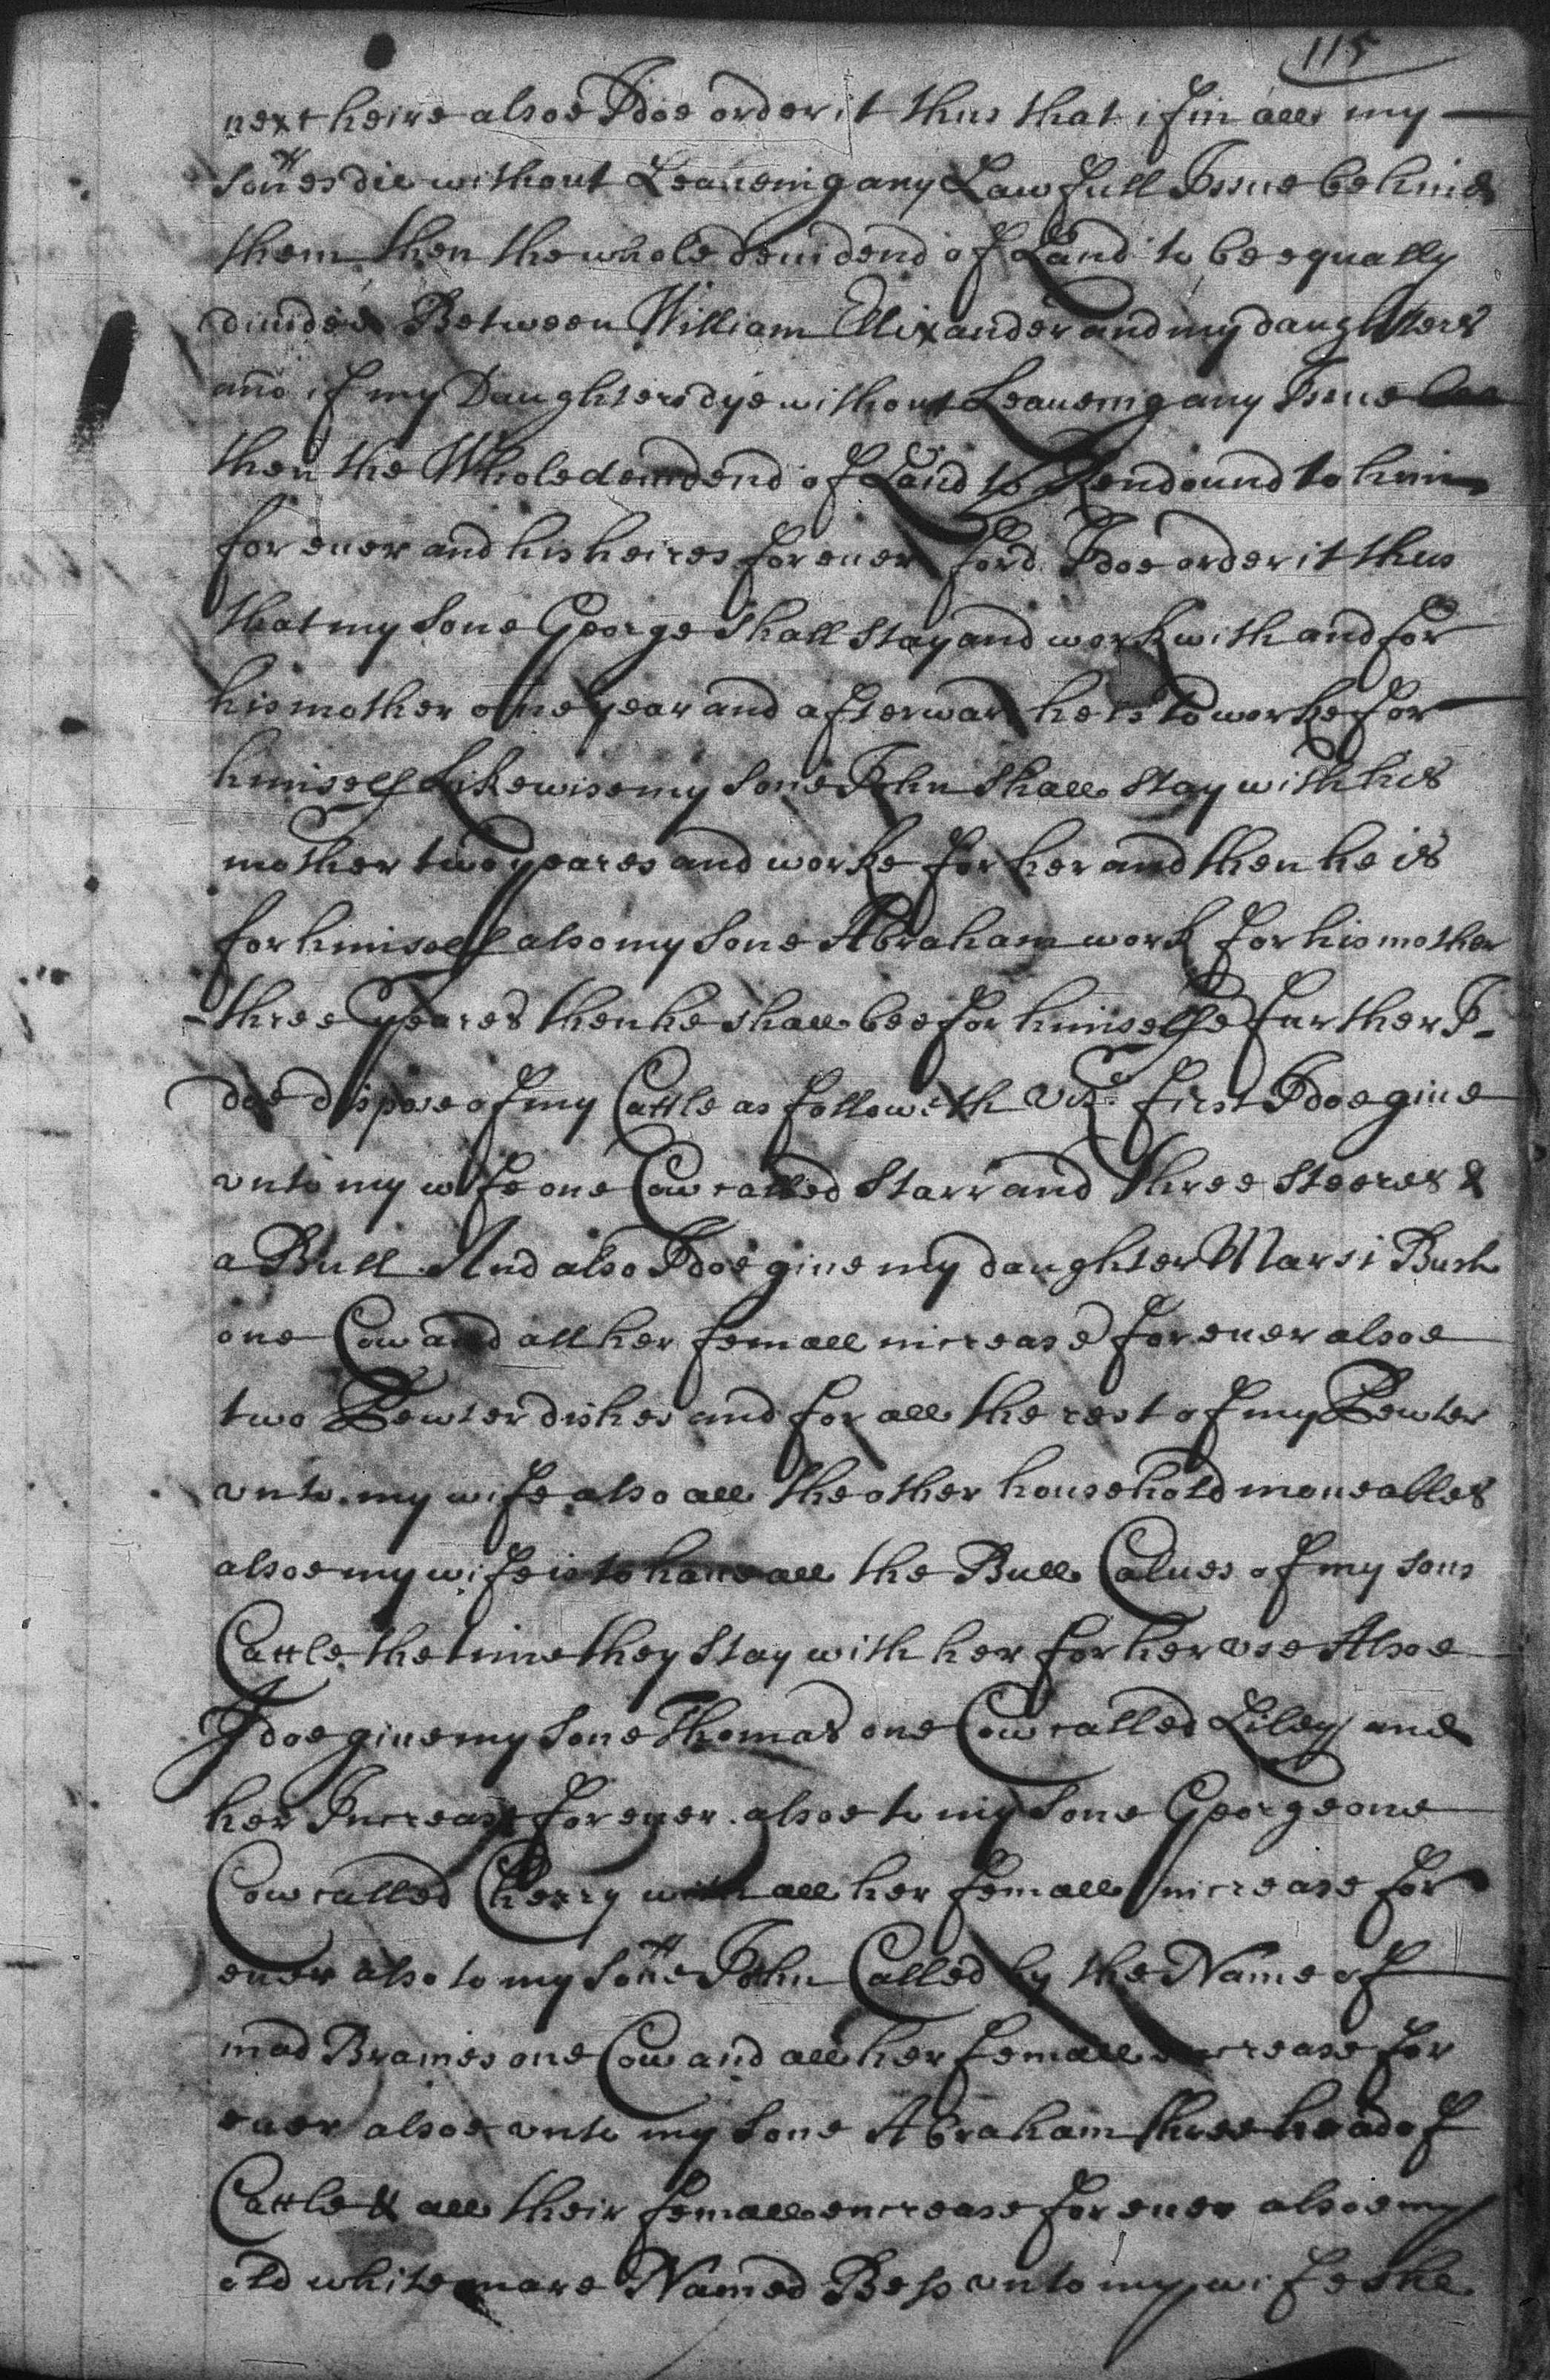 115
next heire alsoe I doe order it thus that if in all my
sonnes die without Leaueing any Lawfull Issue behind
them then the whole deuidend of Land to be equally
diuided Between William Ellixander and my daughters
and if my Daughters dye without Leaueing any Issue
then the Whole deuidend of Land to Rendound to him
for euer and his heires for euer I doe order it thus
that my Sone George shall stay and work with and for
his mother one year and afterward he is to worke for
himself Likewise my Sone John shall stay with his
mother two yeares and worke for her and then he is
for himself also my Sone Abraham work for his mother
three yeares then he shall bee for himselfe further I
doe dispose of my Cattle as followeth Viz first I doe giue
vnto my wife one Cow called Starr and three steeres &
a Bull And also I doe giue my daughter Marsi Bush
one Cow and all her femall increase for euer alsoe
two Pewter dishes and for all the rest of my Pewter
vnto my wife also all the other household moueables
alsoe my wife is to haue all the Bull Calues of my sons
Cattle the time they stay with her for her vse Alsoe
I doe giue my Sone Thomas one Cow called Liley and
her Increase for euer alsoe to my Sone George one
Cow called Cherry with all her femall increase for
euer also to my Sonne John Called by the Name of
mad Braines one Cow and all her femall increase for
euer alsoe vnto my Sone Abraham three head of
Cattle & all their femall encrease for euer alsoe my
old white mare Named Bess vnto my wife she